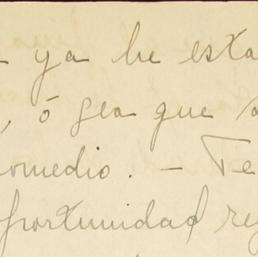 ya he esta
, ó sea que
omedio. - Te
portunidad re